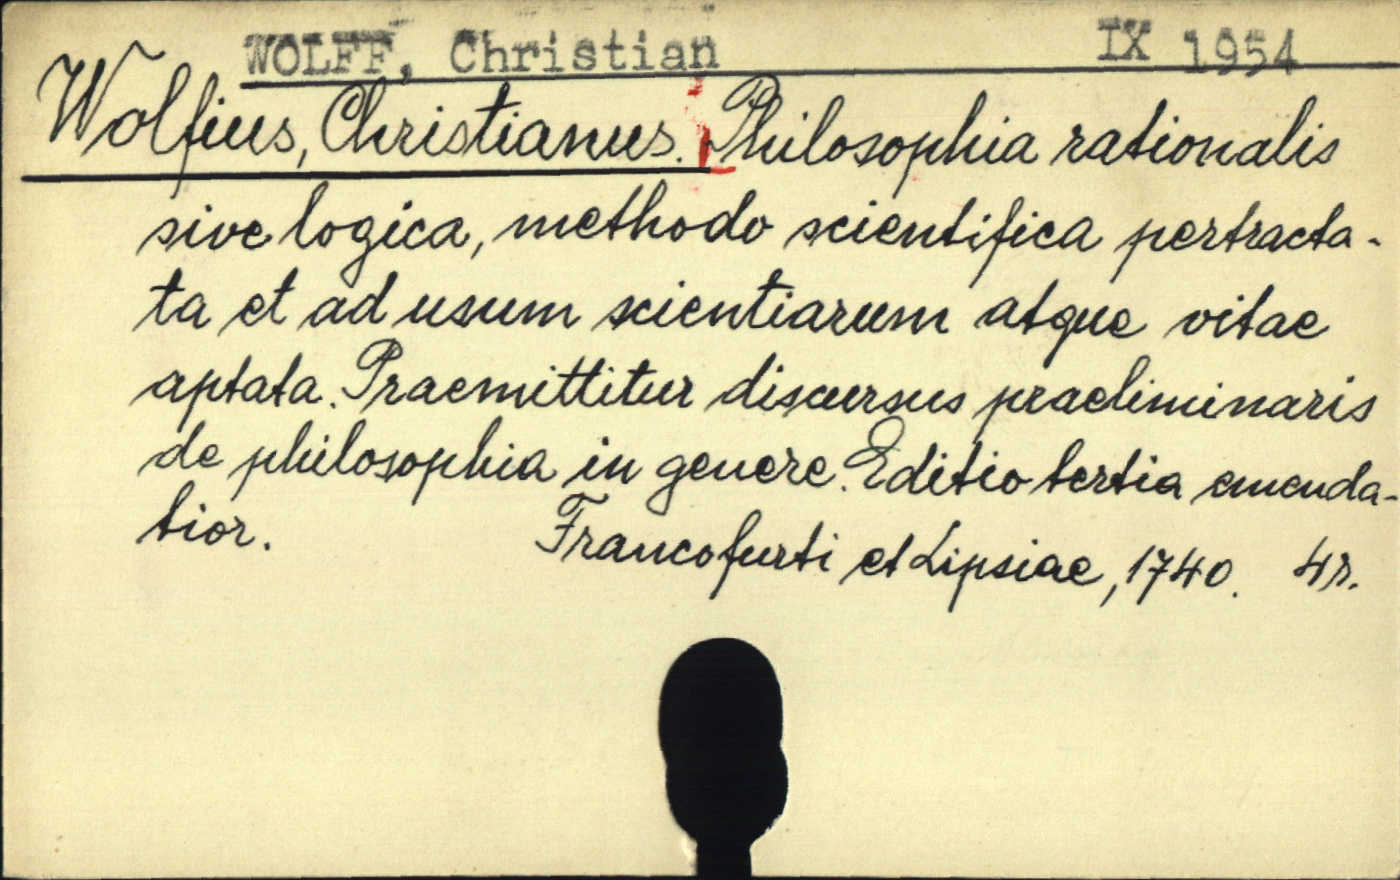 WOLFF, Christian IX 1954
Wolfius, Christianus. Philosophia rationalis
sive logica, methodo scientifica pertracta-
ta et ad usum scientiarum atque vitae
aptata. Praemittitur discursus praeliminaris
de philosophia in genere. Editio tertia emenda-
tior. Francofurti et Lipsiae, 1740. 4r.